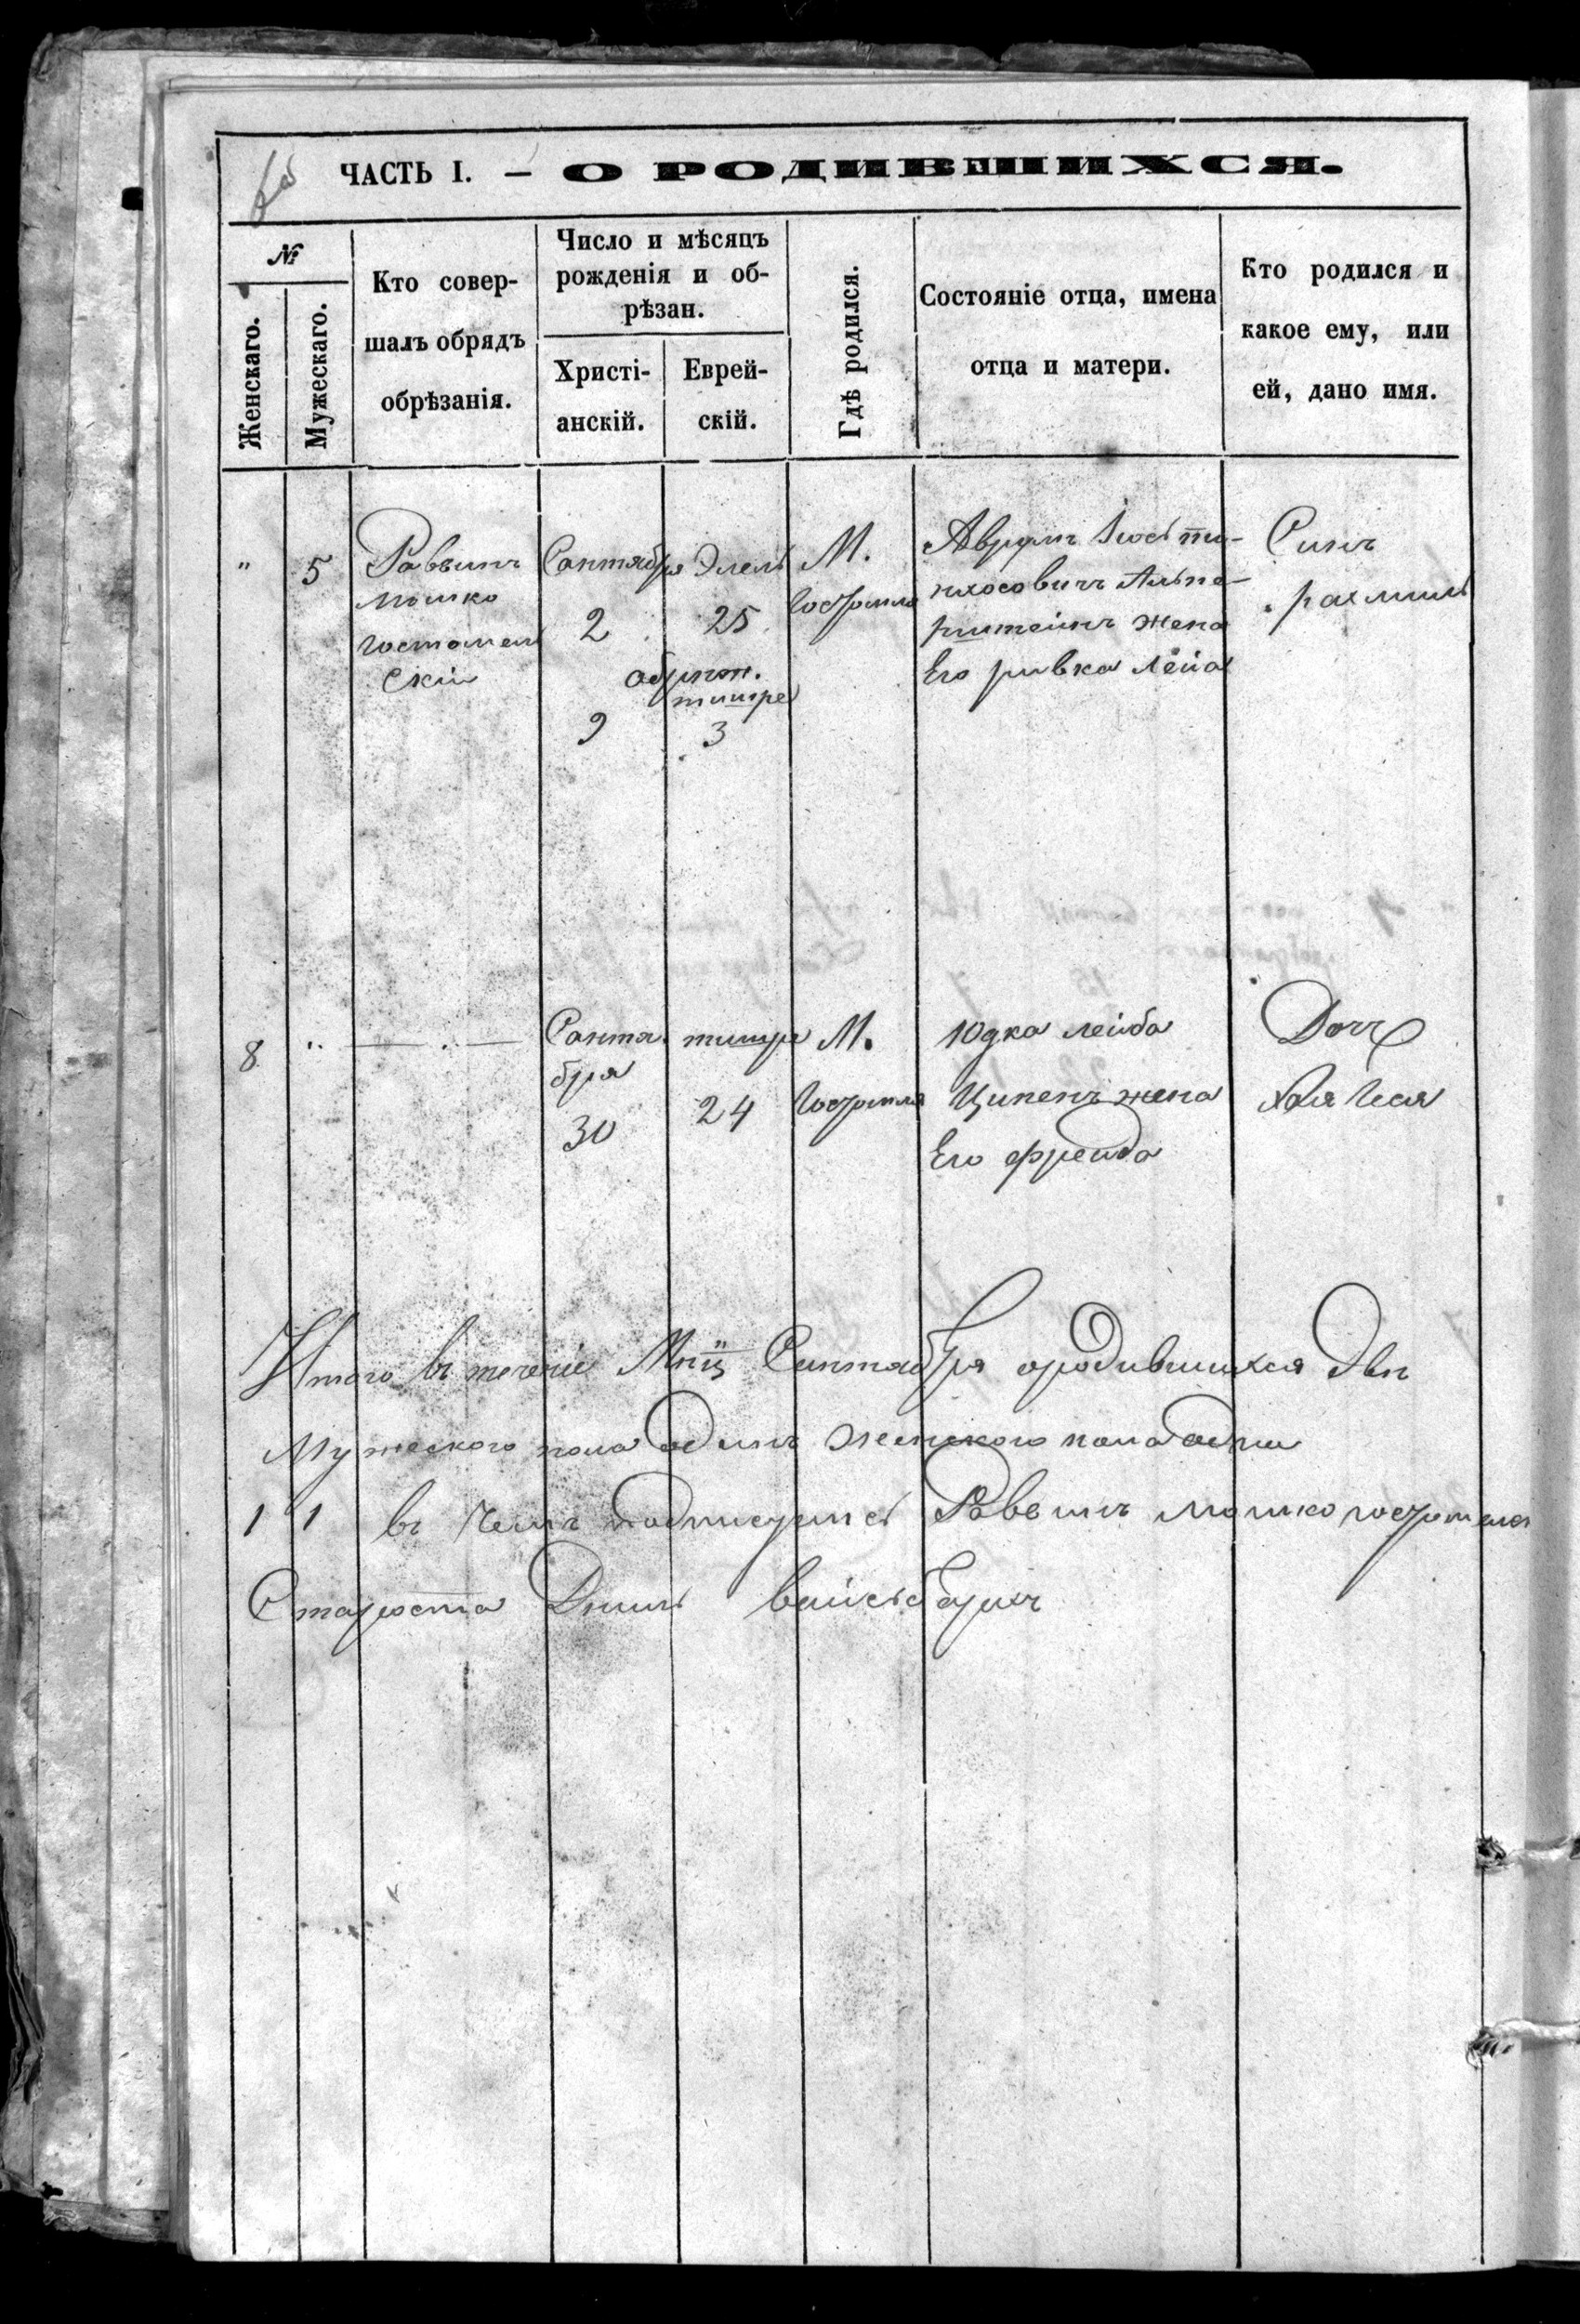 ЧАСТЬ I. — О РОДИВШИХСЯ.
№
Женскаго.
Мужескаго.
Кто совер-
шалъ обрядъ
обрѣзанія.
Число и мѣсяцъ
рожденія и об-
рѣзан.
Христі-
анскій.
Еврей-
скій.
Гдѣ родился.
Состояніе отца, имена
отца и матери.
Кто родился и
какое ему, или
ей, дано имя.
" 5
Раввинъ
Мошко
гостомель
скій
Сентября
2
Элель
25
обрѣз.
тишре
9 3
М.
Гостомля
Аврумъ Іось пи-
нхосовичъ Альпе-
риштейнъ жена
Его ривка Лейа
Синъ
рахмиль
8 " — " —
Сентя
бря
30
тишре
24
М.
Гостомля
Юдка лейба
Ципенъ жена
Его фрейда
Дочь
Хая
Итого въ теченіе Мцѣ Сентября родившихся Двѣ
Мужеского пола один женского пола одна
1 1 въ чемъ подписуемся Раввинъ мошко
Староста